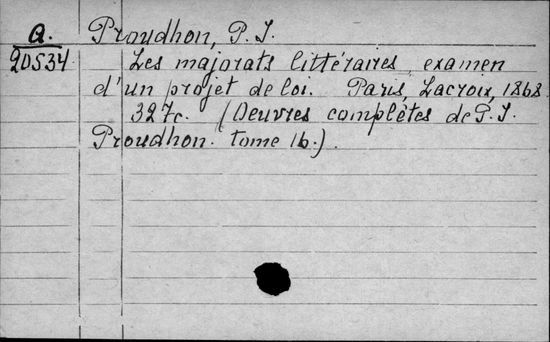 Q. Proudhon, P. J.
20534 Les majorats littéraires, examen
d'un projet de loi. Paris, Lacroix, 1868.
327c. (Oeuvres complétes de P. J.
Proudhon. tome 16.).